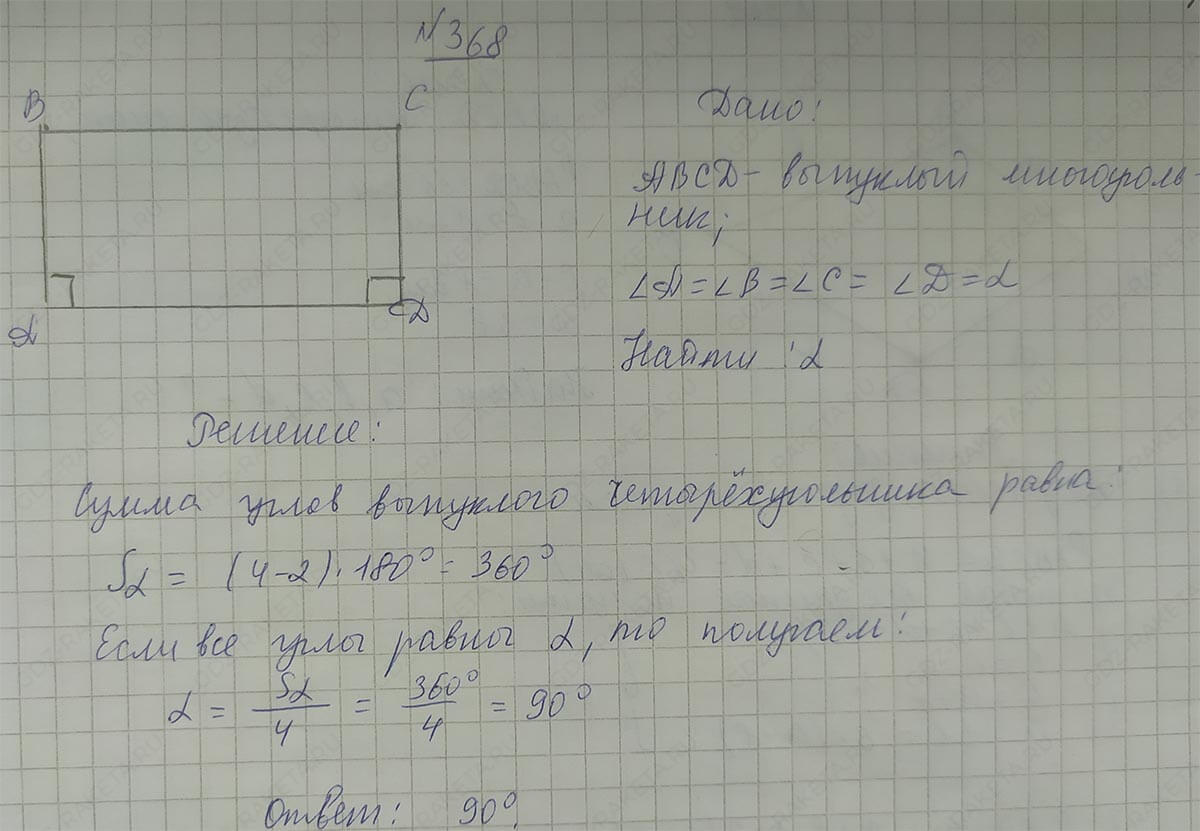 №368
B
C
A
D
Дано:
ABCD - выпуклый многоуголь-
ник;
∠A = ∠B = ∠C = ∠D = α
Найти: α
Решение:
Сумма углов выпуклого четырёхугольника равна:
Sα = (4-2)·180° = 360°
Если все углы равны α, то получаем:
α = Sα/4 = 360°/4 = 90°
Ответ: 90°.